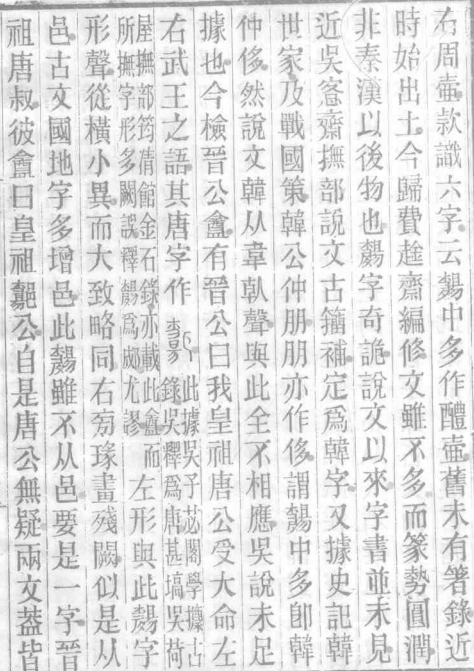 右周壺款識六字云中多作醴壺舊未有箸錄近
時始出土今歸費趛齋編修文雖不多而篆勢圓潤
非秦漢以後物也字奇詭說文以來字書並未見
近吳愙齋撫部說文古籀補定爲韓字又據史記韓
世家及戰國策韓公仲朋朋亦作侈謂中多卽韓
仲侈然說文韓从韋倝聲與此全不相應吳說未足
據也今檢晉公盦有晉公曰我皇祖唐公受大命左
右武王之語其唐字作
此據吳子苾閣學攈古
錄吳釋爲唐甚塙吳荷
屋撫部筠清館金石錄亦載此盦而
所撫字形多闕誤釋爲尤謬
左形與此字
形聲從橫小異而大致略同右旁瑑畫殘闕似是从
邑古文國地字多增邑此雖不从邑要是一字晉
祖唐叔彼盦曰皇祖公自是唐公無疑兩文葢皆